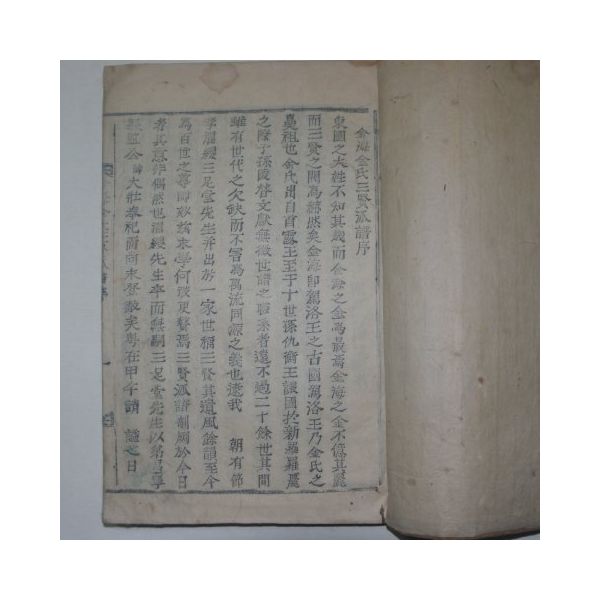 金海金氏三賢派譜序
東國之大姓不知其幾而金海之金爲最焉金海之金不億其麗
而三賢之閥爲赫然矣金海卽駕洛王之古國駕洛王乃金氏之
鼻祖也金氏出自首露王至于十世孫仇衡王讓國於新羅羅麗
之際子孫閥啓文獻無徵世譜之昭來者還不過二十餘世其間
雖有世代之欠缺而不害爲萬流同源之義也逮我 朝有節
孝濯纓三足堂先生幷出於一家世稱三賢其遺風餘韻至今
爲百世之尊而 末學何敢更贅焉三賢派譜創開於今日
者其意非偶然也濯纓先生卒而無嗣三足堂先生以第 寧
縣監公 大壯奉祀而尙未登 矣粤在甲午請 諡之日